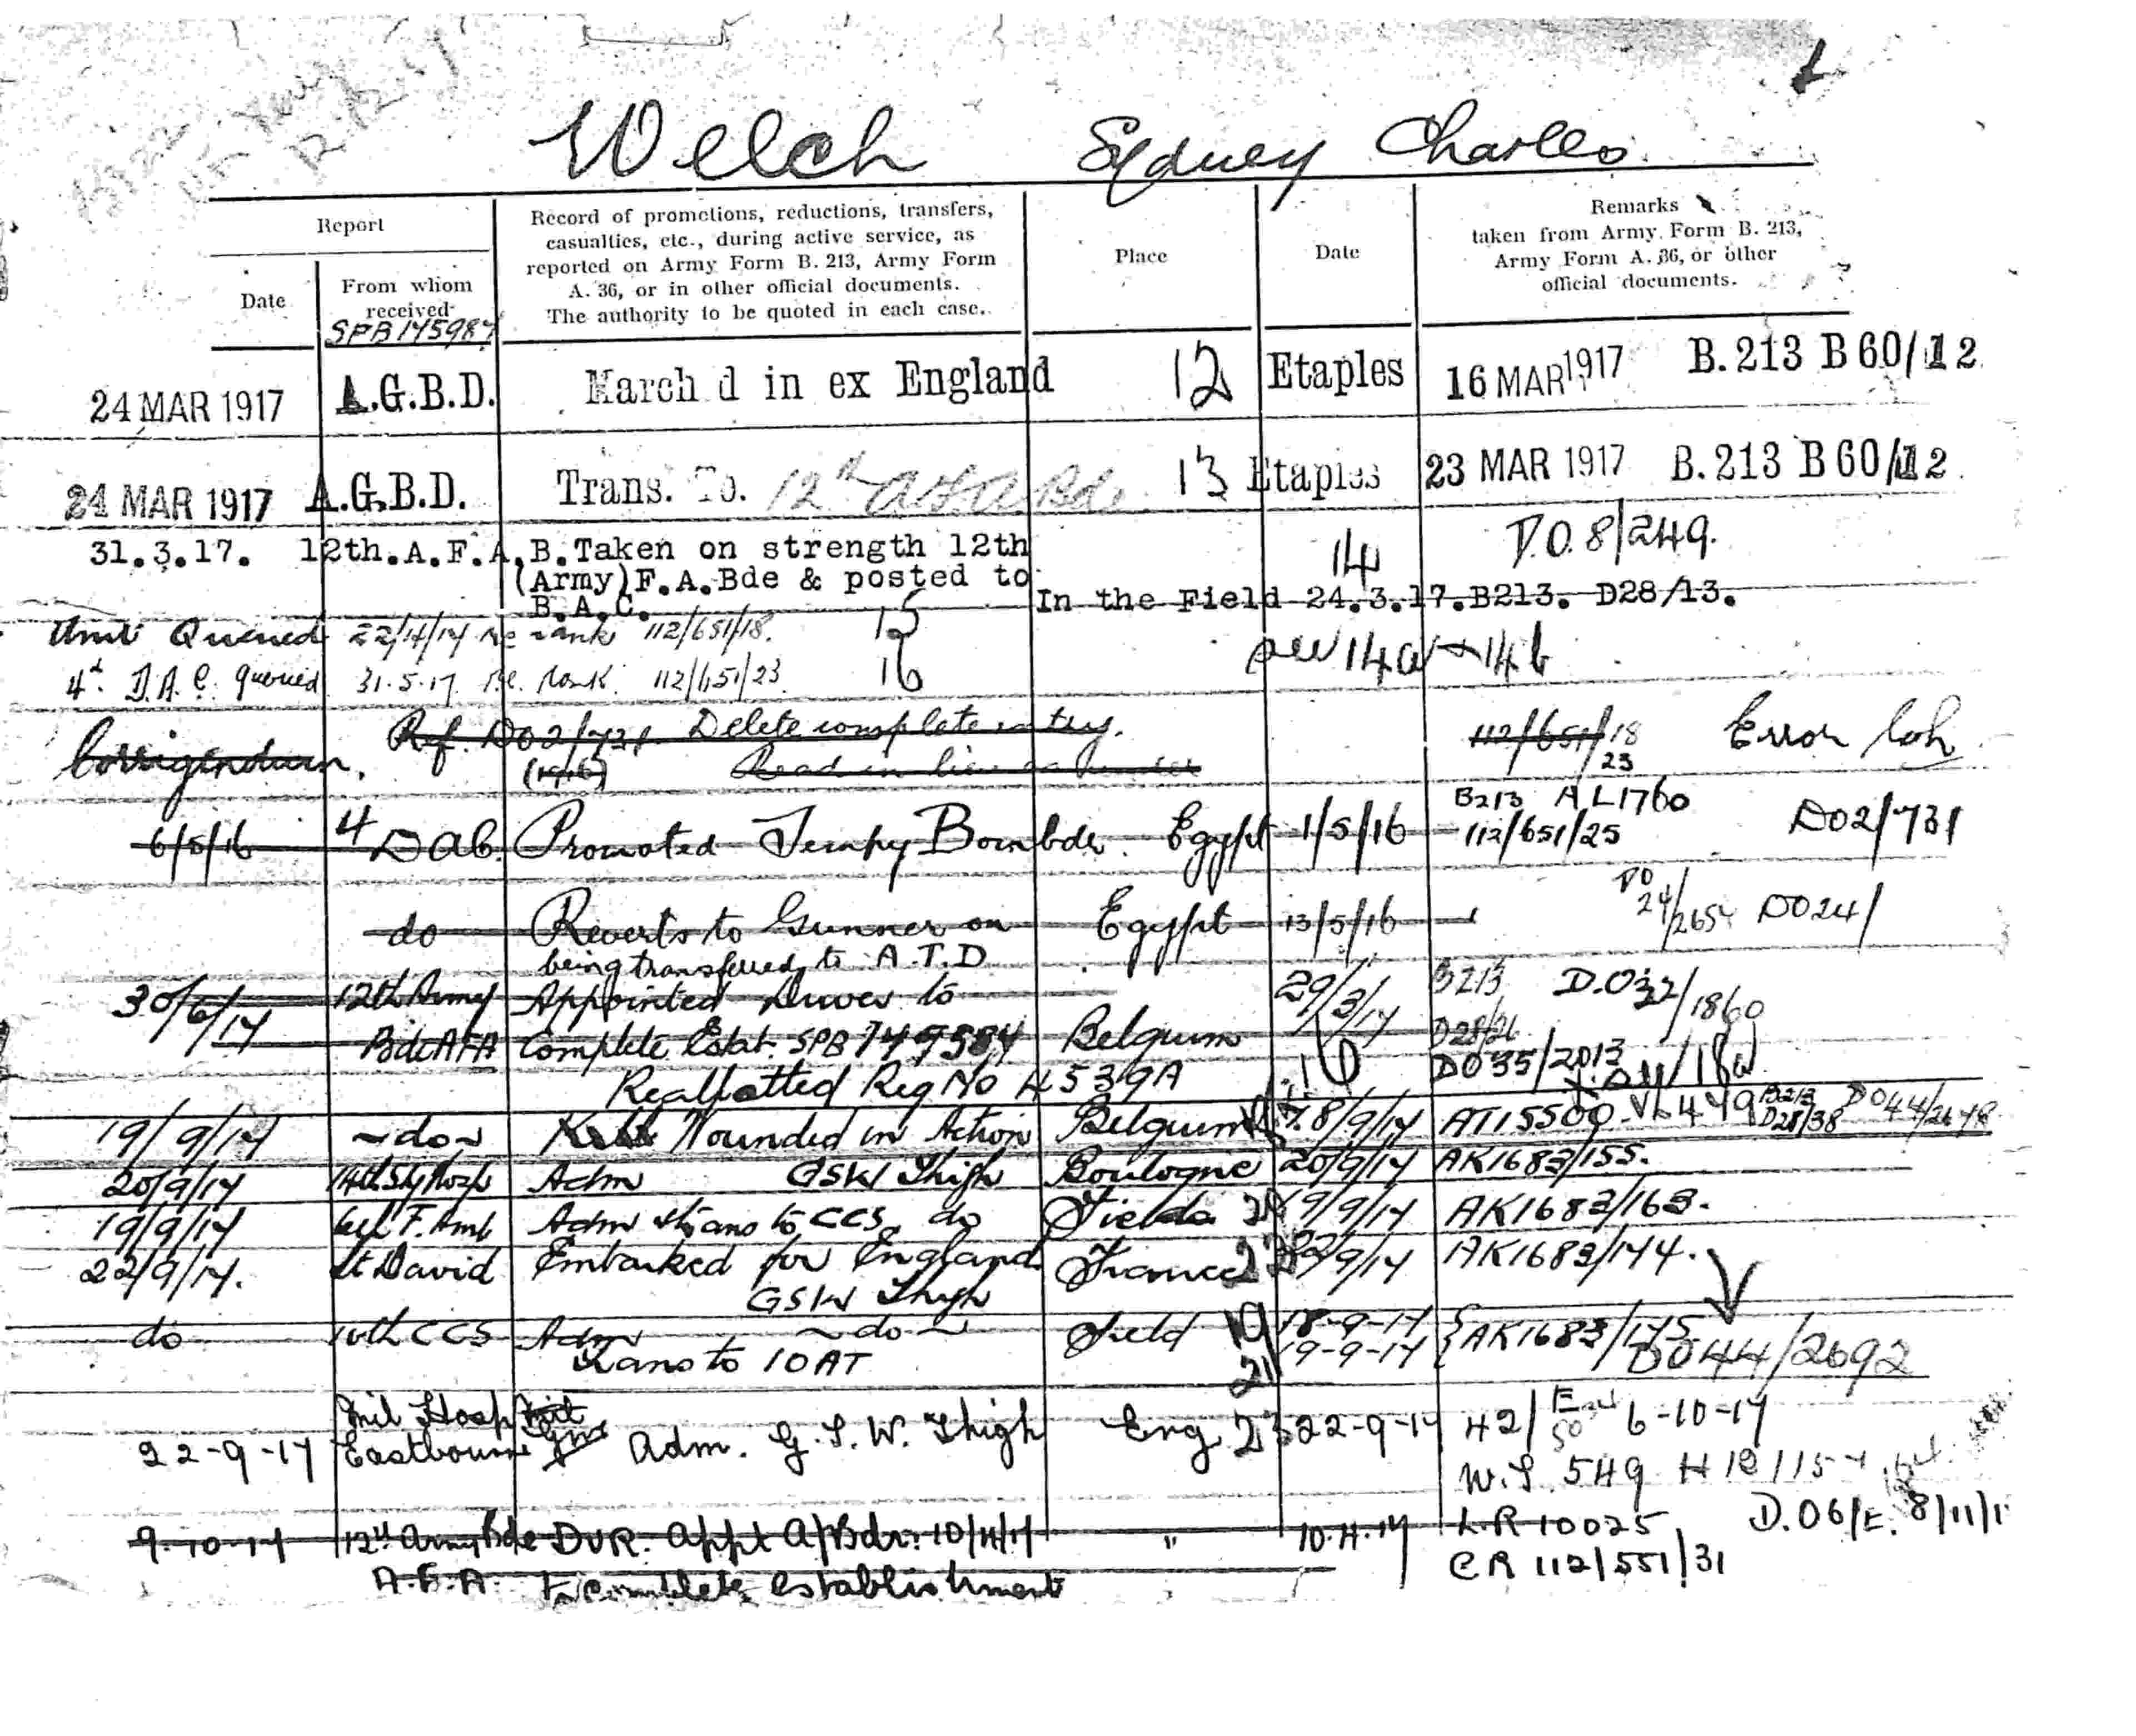 Welch Sydney Charles
Report
Date
From whom
received
SPB145987
Record of promotions, reductions, transfers,
casualties, etc., during active service, as
reported on Army Form B. 213, Army Form
A. 36, or in other official documents.
The authority to be quoted in each case.
Place
Date
Remarks
taken from Army Form B. 213,
Army Form A. 36, or other
official documents.
24 MAR 1917 A.G.B.D. March d in ex England 12 Etaples 16 MAR 1917 B.213 B 60/12
24 MAR 1917 A.G.B.D. Trans. To. 12th A.F.A. Bde 13 Etaples 23 MAR 1917 B.213 B 60/12
31.3.17. 12th.A.F.A.B. Taken on strength 12th 14 D.O. 8/249.
(Army)F.A.Bde & posted to
B.A.C. In the Field 24.3.17. B213. D28/13.
Unit Queried 22/4/17 re rank 112/651/18. 15
4th D.A.C. queried 31.5.17 re. rank. 112/651/23 16
14a + 14b
Corrigendum. Ref. D02/731 Delete complete entry. 112/651/18 Error
23
Read in lieu
6/5/16 4 DAC. Promoted Tempy Bombdr. Egypt 1/5/16 B213 AL1760
112/651/25 D02/731
do Reverts to Gunner on Egypt 13/5/16 D024/
being transferred to A.T.D
30/6/17 12th Army Appointed Driver to 29/3/17 B213 D.O32/1860
Bde AFA Complete Estab. SPB 149584 Belgium D28/26
D035/2013
Reallotted Reg No 4539A
19/9/17 do Wounded in Action Belgium 18/9/17 AT15500 V6479 B213 D28/38 D044/2678
20/9/17 14th Sty Hosp Adm GSW Thigh Boulogne 20/9/17 AK1683/155.
19/9/17 F. Amb Adm & trans to CCS do Field 19/9/17 AK1683/163.
22/9/17. St David Embarked for England France 22/9/17 AK1683/174.
GSW Thigh
do 10th CCS Adm do Field 19 18-9-17 AK1683/175
Trans to 10 AT 21 19-9-17 D044/2692
Mil Hosp
22-9-17 Eastbourne Adm. G.S.W. Thigh Eng 23 22-9-17 42/ 6-10-17
W.S. 549
9-10-17 12th Army Bde DVR. appt A/Bdr. 10/4/17 " 10.4.17 L.R 10025 D.O6/E. 8/11/1
A.F.A. To complete establishment CR 112/551/31